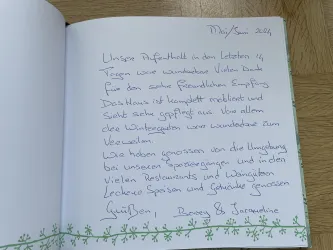 Mai/Juni 2024
Unser Aufenthalt in den letzten 14
Tagen war wunderbar Vielen Dank
für den sehr freundlichen Empfang
Das Haus ist komplett möbliert und
sieht sehr gepflegt aus Vor allem
der Wintergarten war wunderbar zum
Verweilen.
Wir haben genossen von die Umgebung
bei unseren Spaziergängen und in den
vielen Restaurants und Weingüten
Leckere Speisen und Getränke genossen
Grüßen, & Jacqueline